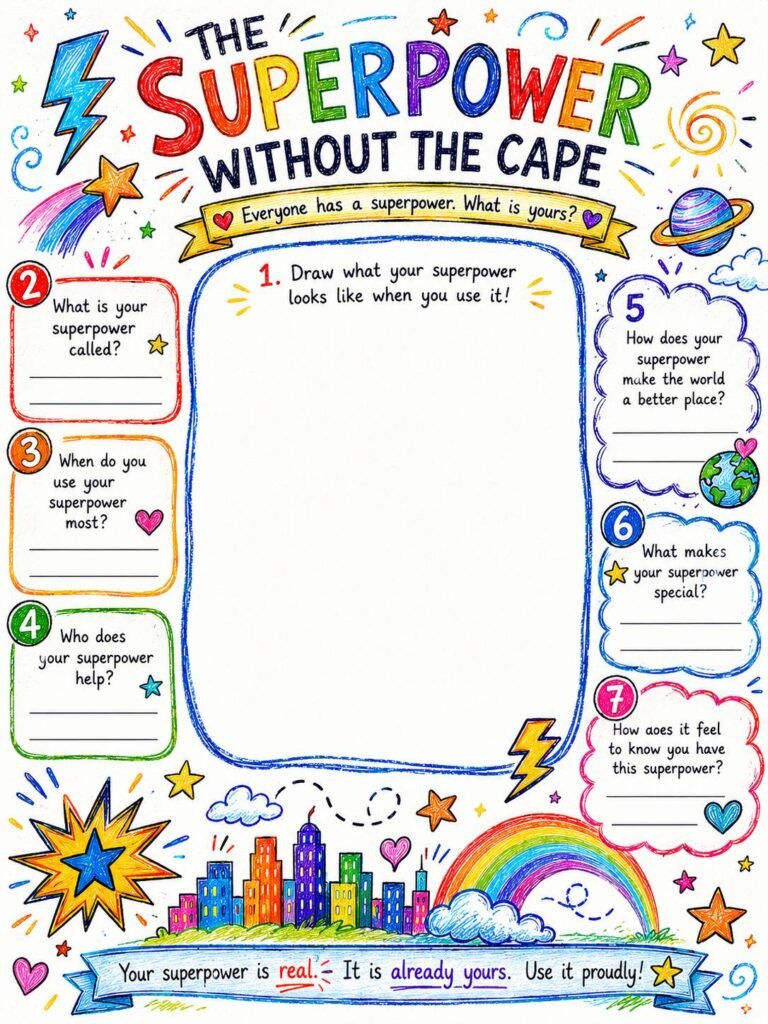 THE
SUPERPOWER
WITHOUT THE CAPE
Everyone has a superpower. What is yours?
1. Draw what your superpower
looks like when you use it!
2
What is your
superpower
called?
3
When do you
use your
superpower
most?
4
Who does
your superpower
help?
5
How does your
superpower
make the world
a better place?
6
What makes
your superpower
special?
7
How aoes it feel
to know you have
this superpower?
Your superpower is real. It is already yours. Use it proudly!